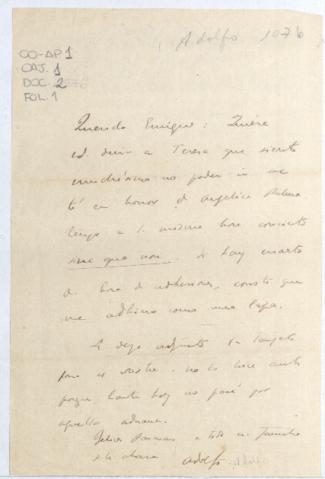 Adolfo 1076
CO-AP 1
CAJ. 1
DOC. 2
FOL. 1
Querido Enrique: Quiere
ud decir a Teresa que siento
muchísimo no poder
té en honor d Angélica
tengo a l misma hora
sine qua non. Si hay
d hora de adhesiones, conste que
me adhiero como una lapa.
Le dejo adjunto tarjeta
para el no lo hice antes
porque hasta hoy no pasé por
aquella aduana.
Felices Pascuas a td su familia
Adolfo Adolfo